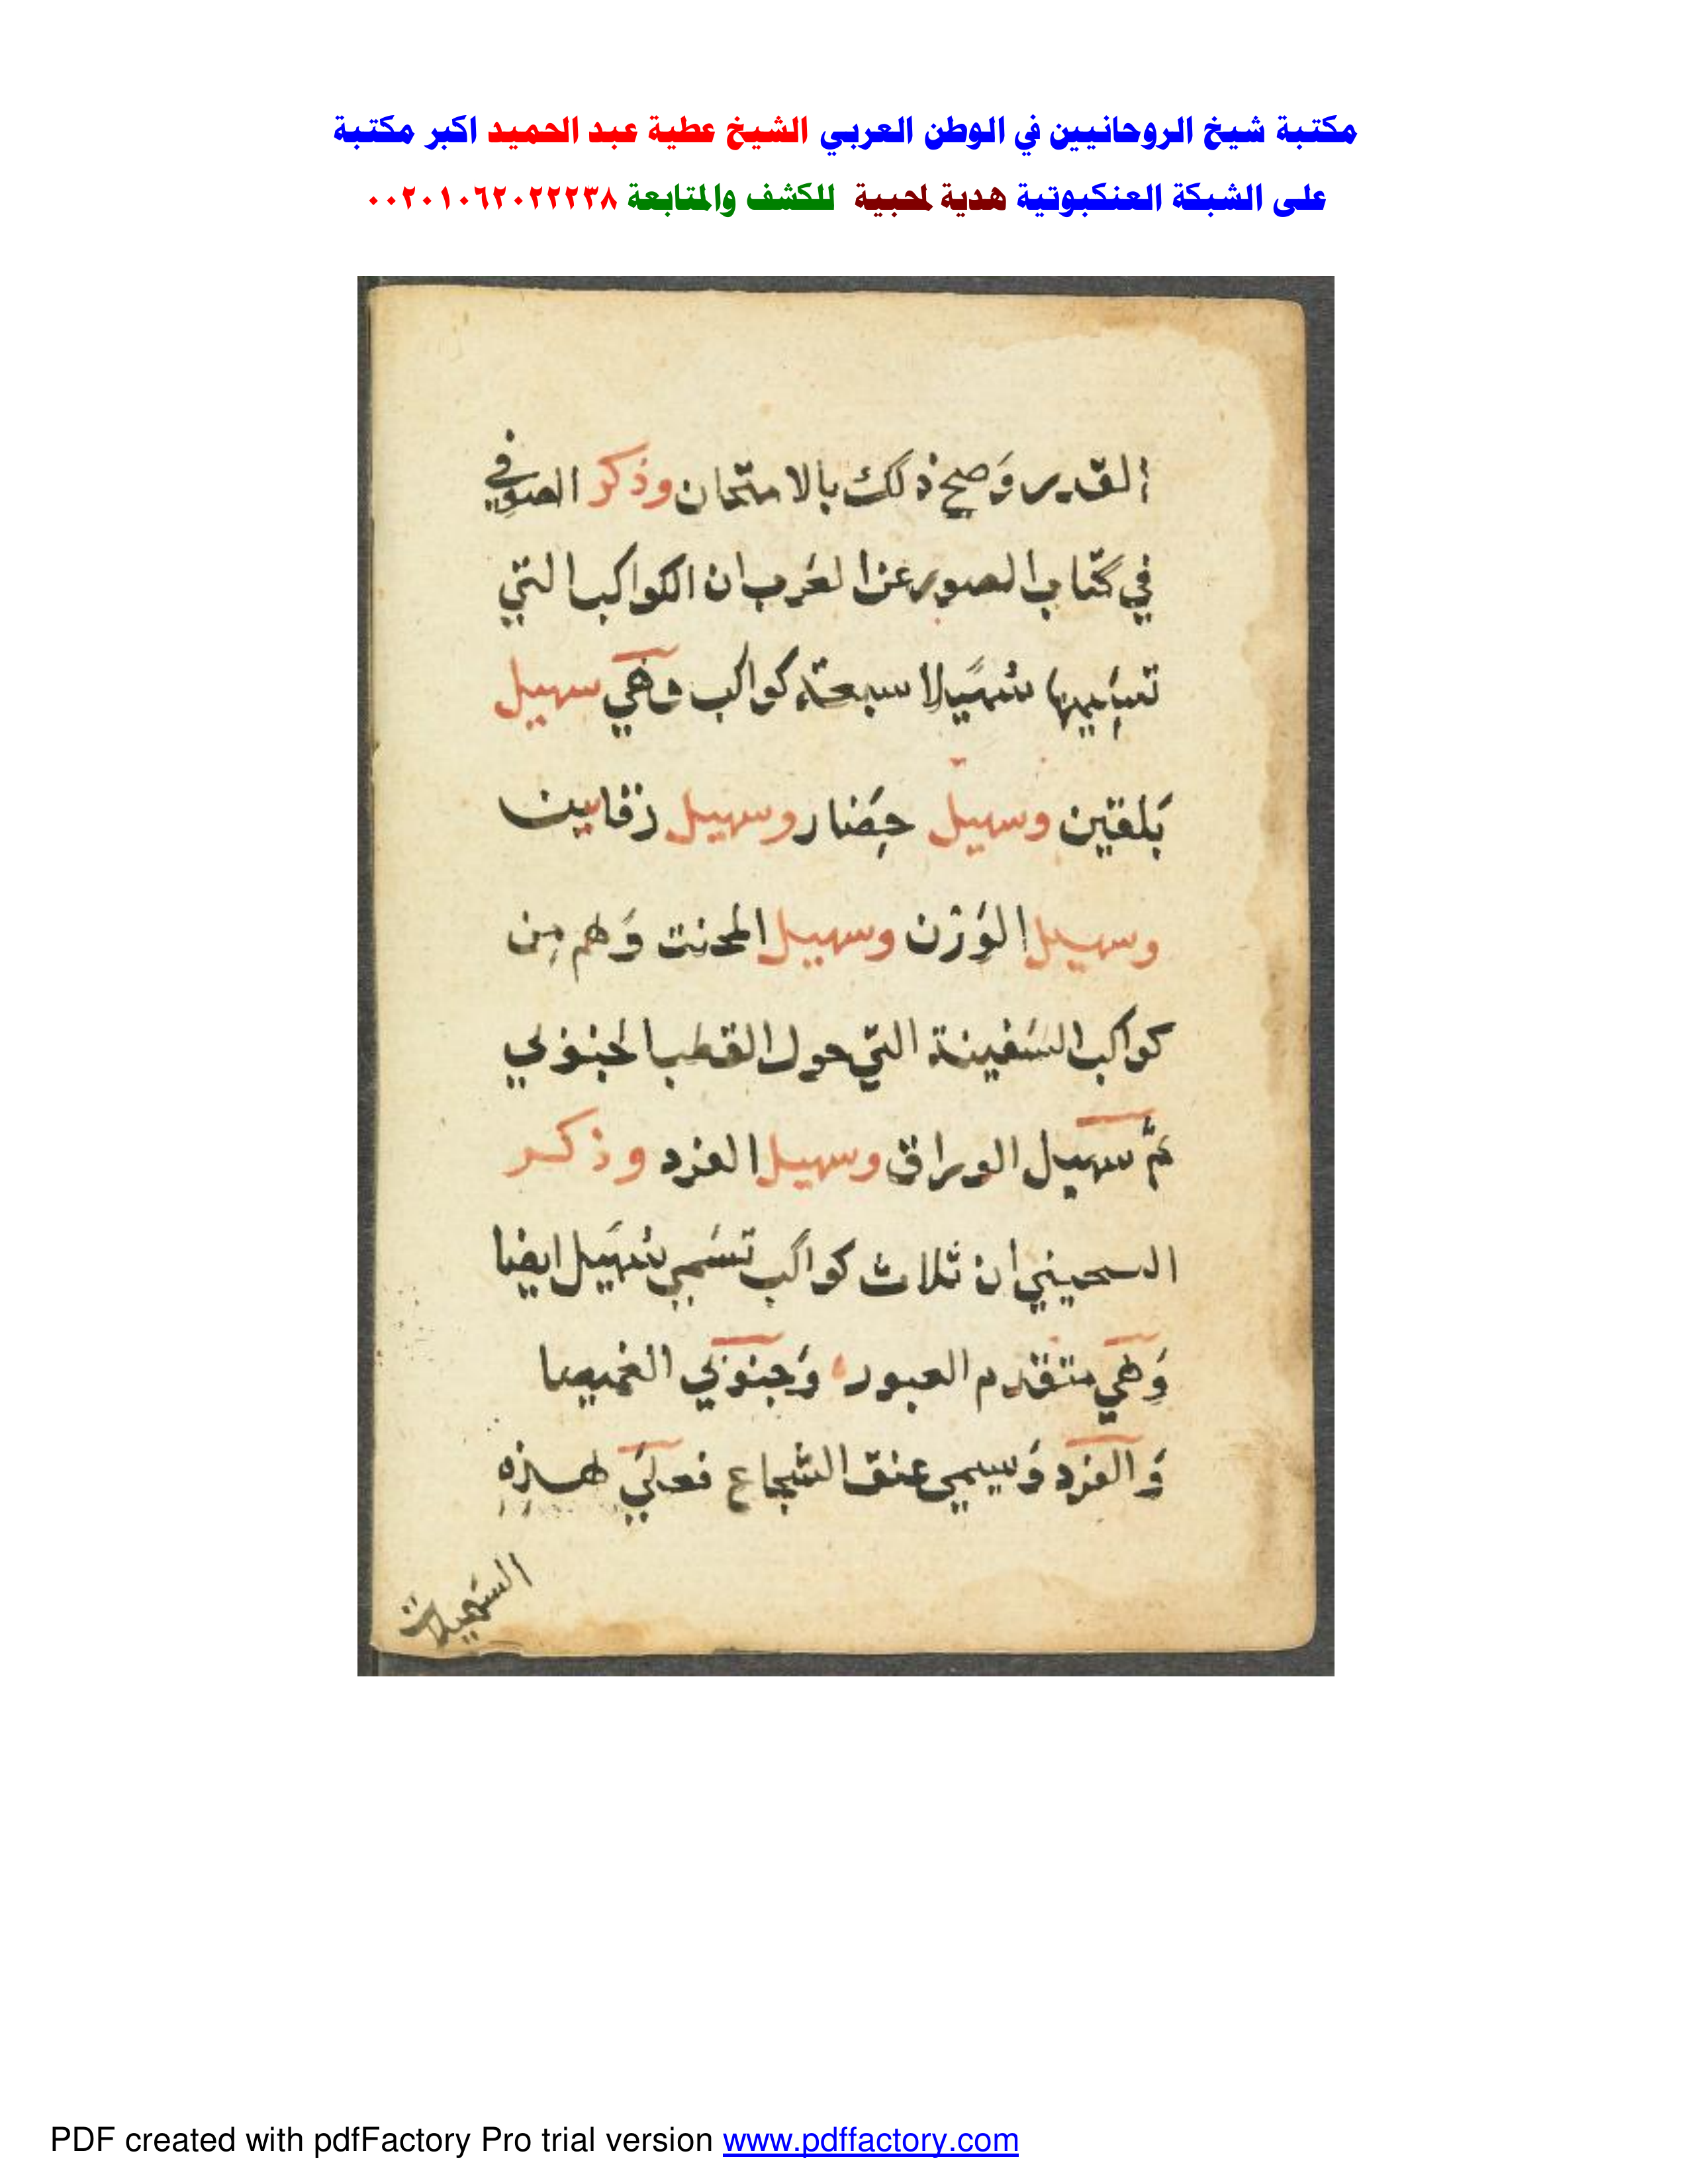 مكتبة شيخ الروحانيين في الوطن العربي الشيخ عطية عبد الحميد اكبر مكتبة
على الشبكة العنكبوتية هدية لمحبية للكشف والمتابعة ٠٠٢٠١٠٦٢٠٢٢٢٣٨
القدر وَصح ذلك بالامتحان وذكر الصوفي
في كتاب الصور عن العَرب ان الكواكب التي
تسَميها سُهَيلا سبعة كواكب وهي سهيل
بَلقين وسهيل حِضَار وسهيل رقاين
وسهيل الوَزن وسهيل المحنت وَهم مِن
كواكب السَفينة التي حول القطب الجنوبي
ثمَّ سهيل العراق وسهيل الفرد وذكر
السحيني ان ثلاث كواكب تسَمي سُهَيل ايضا
وَهي متقدم العبور وَجنوبي الغميصا
وَالفرد وَيسمي عنق الشجاع فعلي هذِهِ
السَهيلات
PDF created with pdfFactory Pro trial version www.pdffactory.com